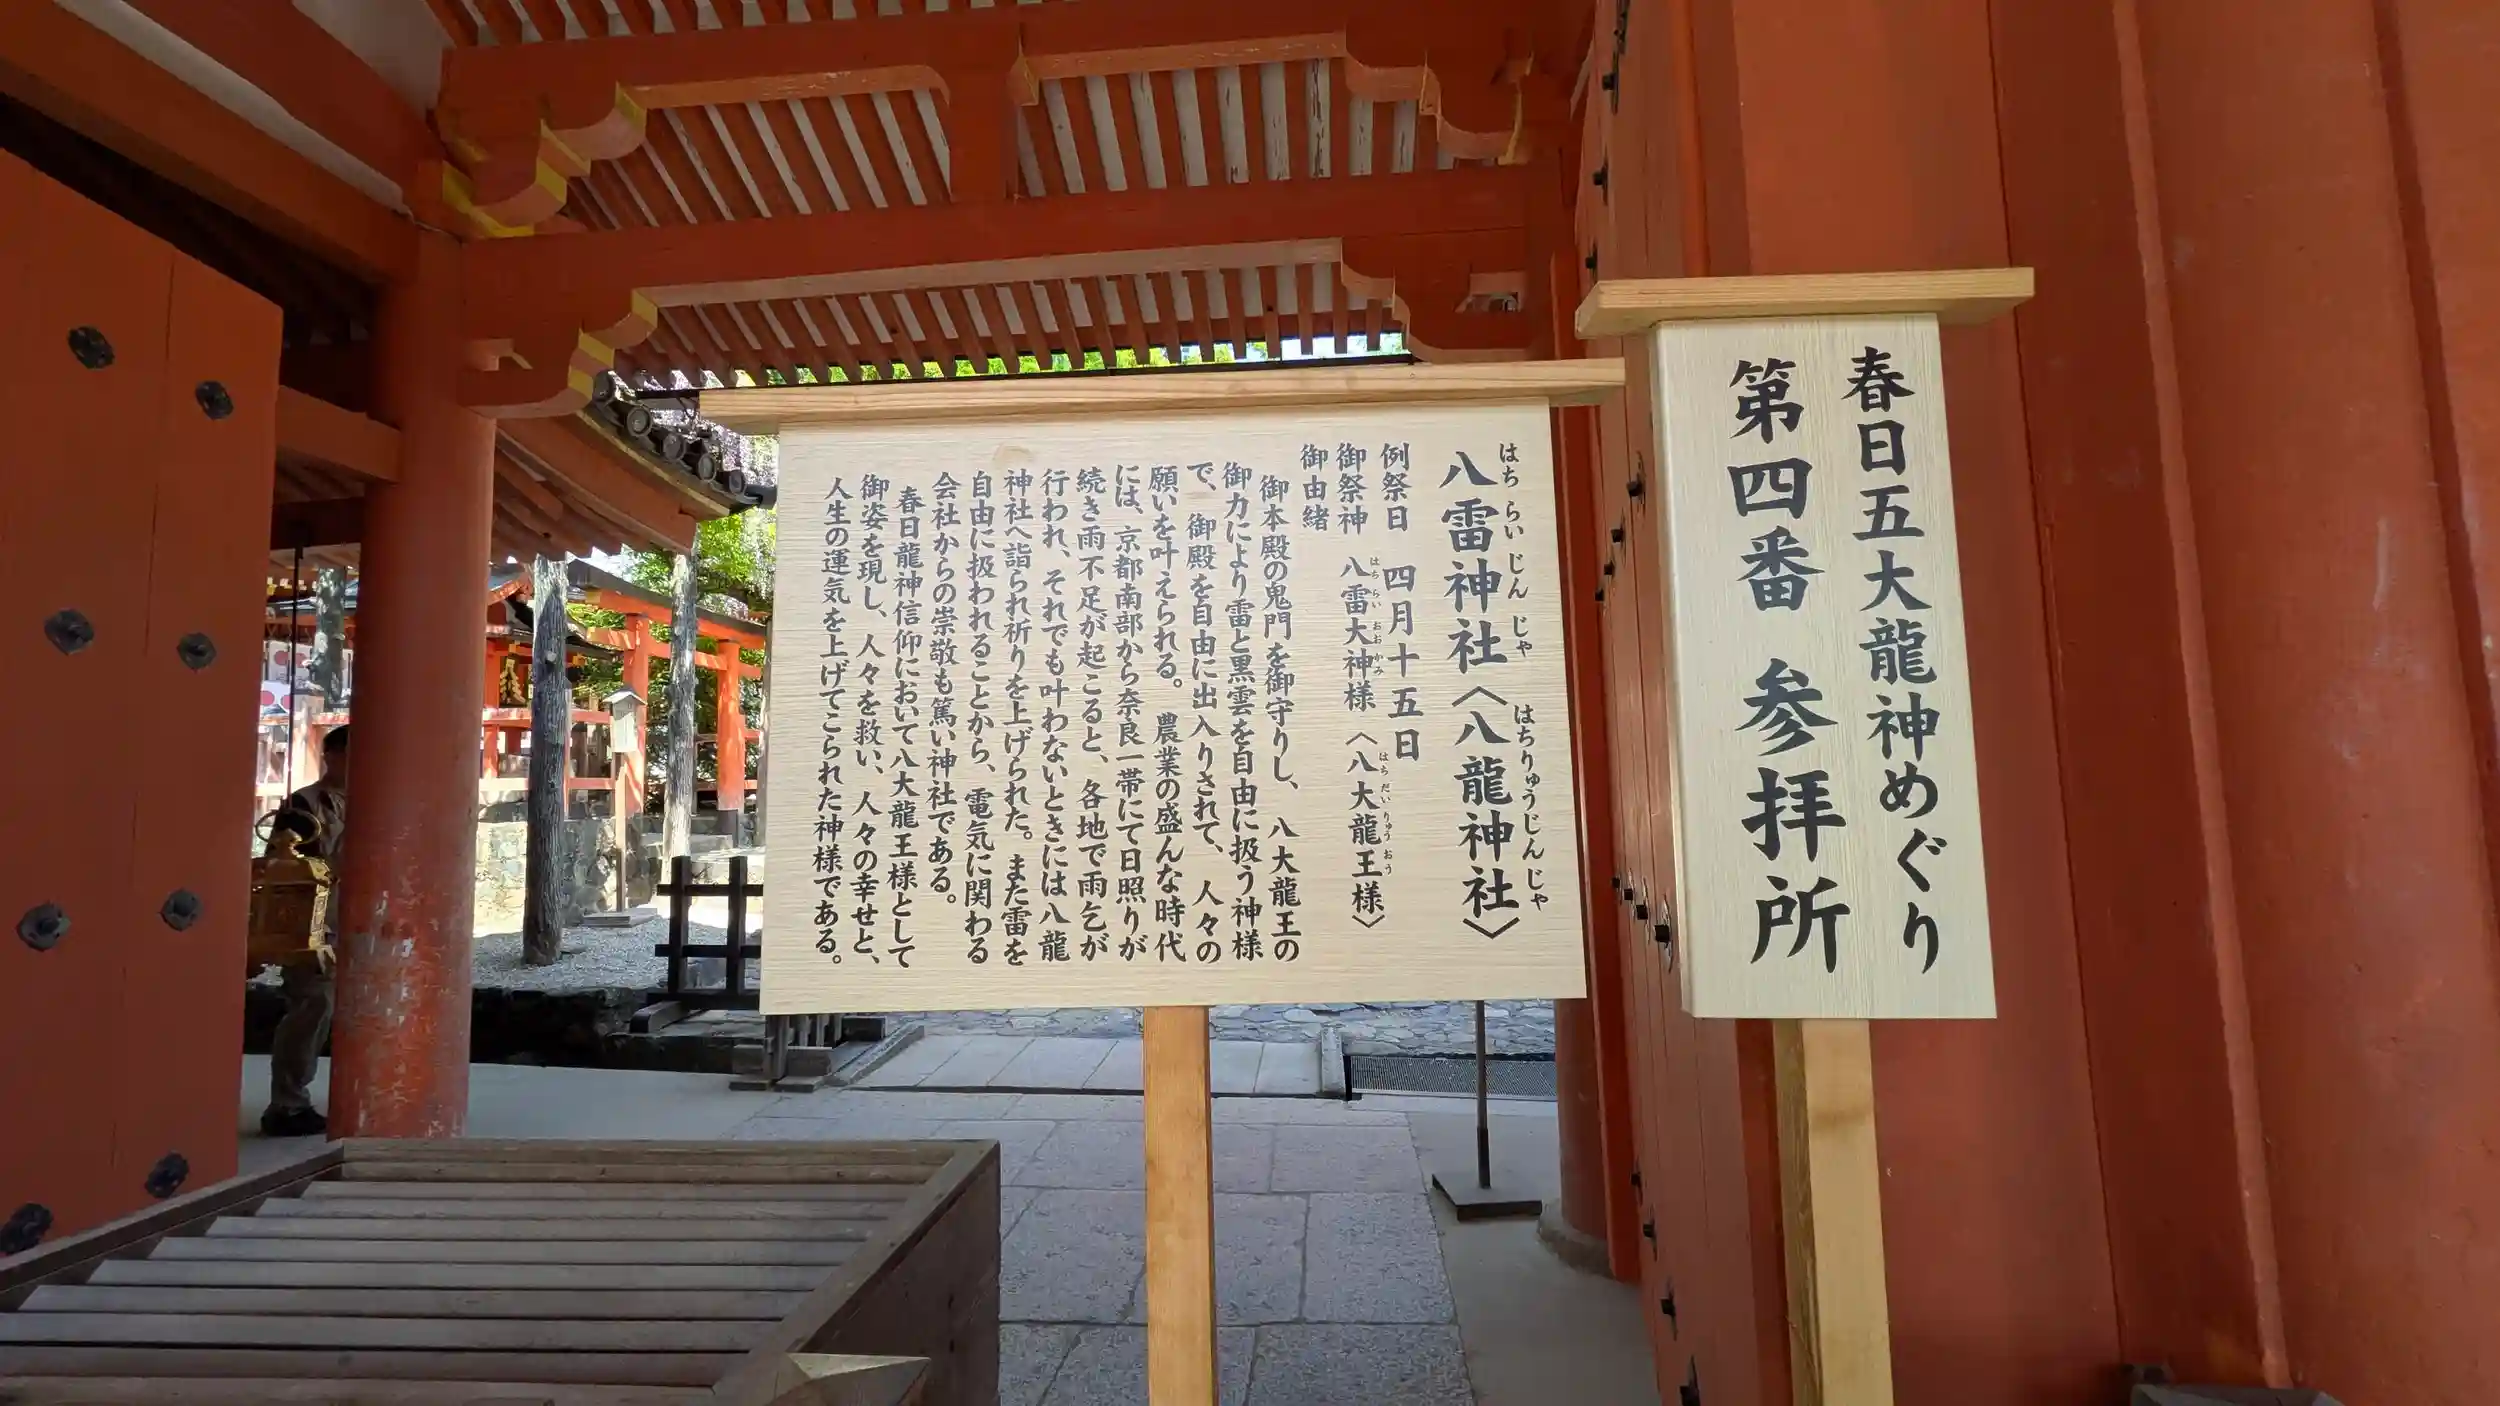 春日五大龍神めぐり
第四番 参拝所
はちらいじんじゃ はちりゅうじんじゃ
八雷神社〈八龍神社〉
例祭日 四月十五日
はちらいおおかみ はちだいりゅうおう
御祭神 八雷大神様〈八大龍王様〉
御由緒
御本殿の鬼門を御守りし、八大龍王の
御力により雷と黒雲を自由に扱う神様
で、御殿を自由に出入りされて、人々の
願いを叶えられる。農業の盛んな時代
には、京都南部から奈良一帯にて日照りが
続き雨不足が起こると、各地で雨乞が
行われ、それでも叶わないときには八龍
神社へ詣られ祈りを上げられた。また雷を
自由に扱われることから、電気に関わる
会社からの崇敬も篤い神社である。
春日龍神信仰において八大龍王様として
御姿を現し、人々を救い、人々の幸せと、
人生の運気を上げてこられた神様である。